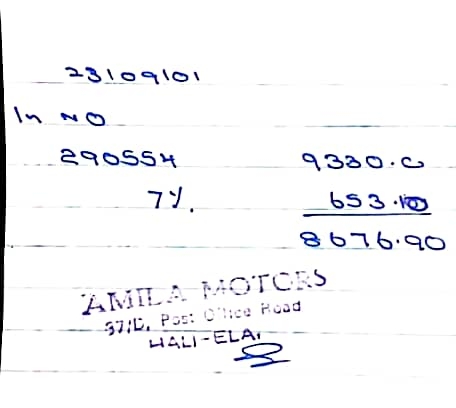 23109101
In NO
290554 9330.0
7%. 653.10
8676.90
AMILA MOTORS
37/D, Post Office Road
HALI-ELA.